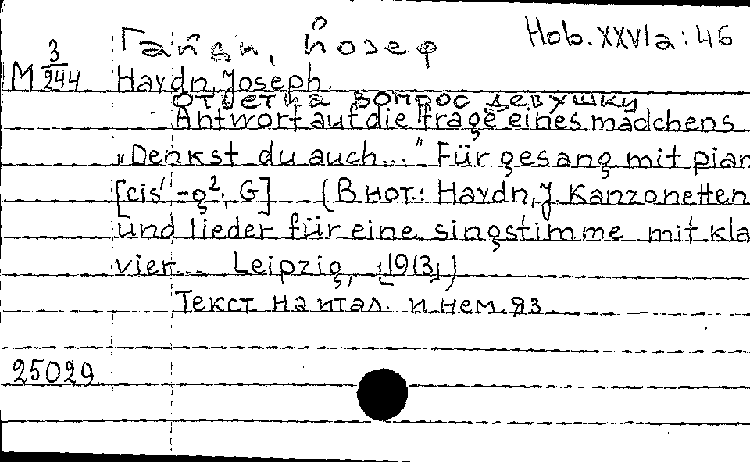 Гайдн, Йозеф Hob. XXVIa:46
M 3/244 Haydn, Joseph
ответ на вопрос девушку
Antwort auf die frage eines mädchens
„Denkst du auch..." Für gesang mit pian
[cis' - g², G] (В нот.: Haydn, J. Kanzonetten
und lieder für eine singstimme mit kla
vier. Leipzig, [1913])
Текст на итал. и нем. яз
25029